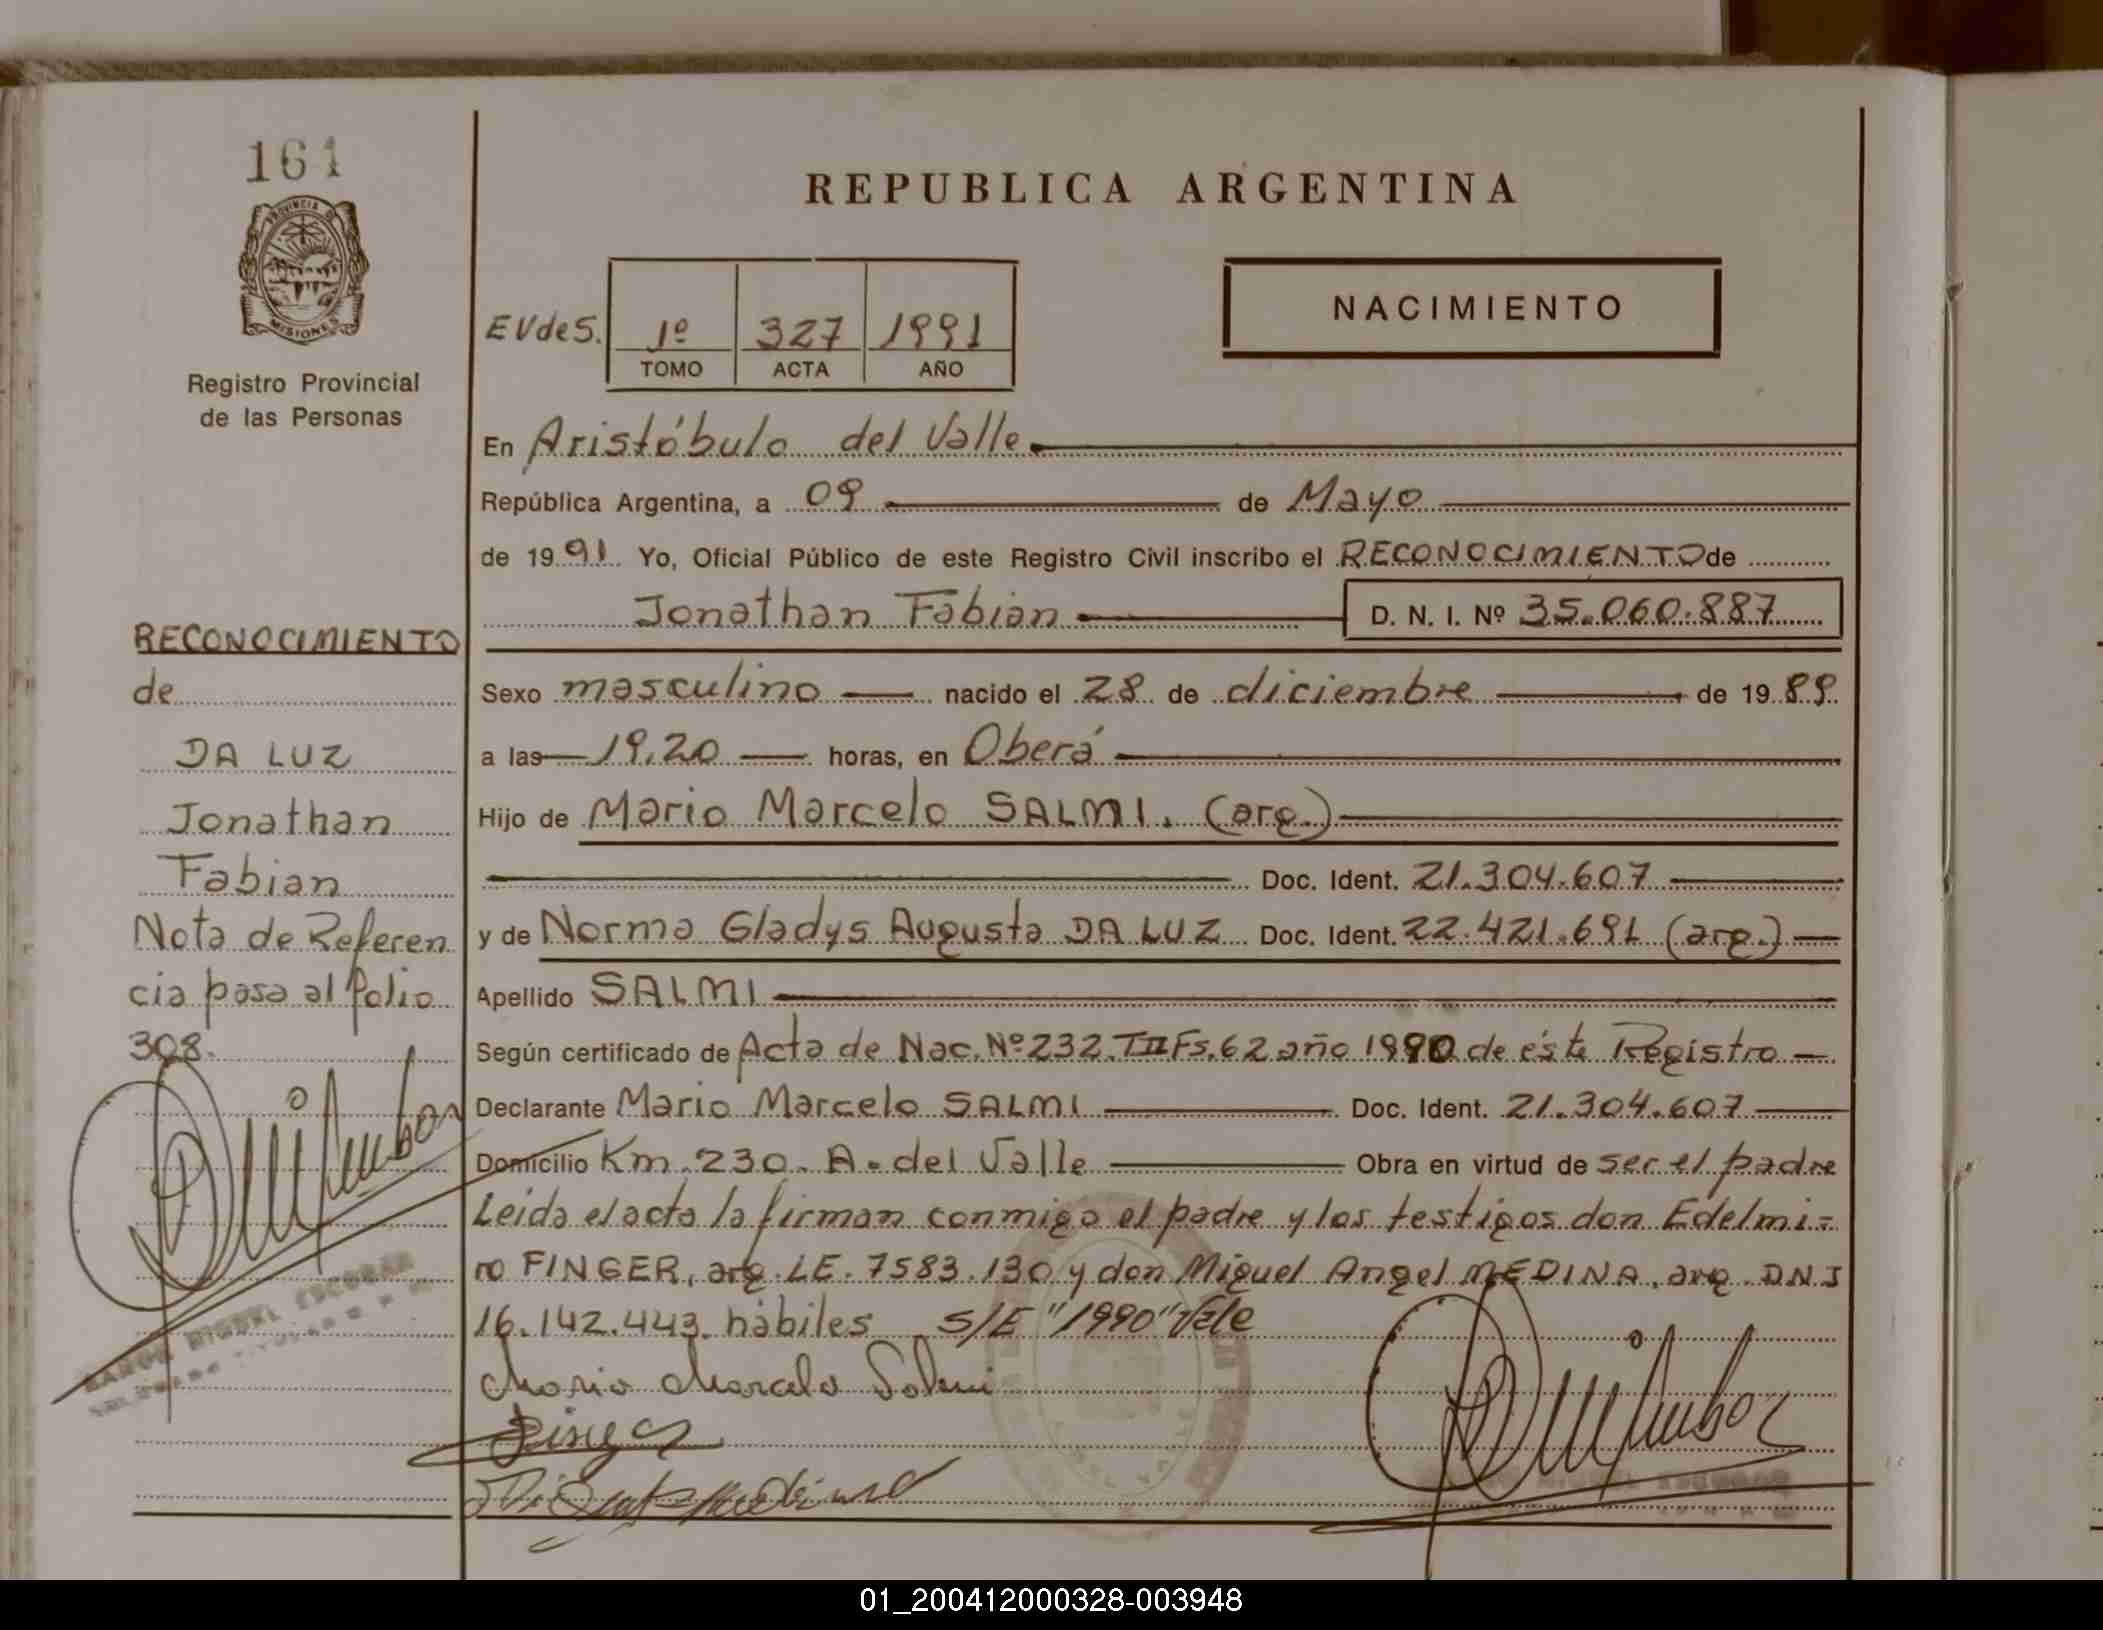 161
PROVINCIA DE
MISIONES
Registro Provincial
de las Personas
REPUBLICA ARGENTINA
NACIMIENTO
EVdeS. 1º 327 1991
TOMO ACTA AÑO
En Aristóbulo del Valle
República Argentina, a 09 de Mayo
de 1991 Yo, Oficial Público de este Registro Civil inscribo el RECONOCIMIENTO de
Jonathan Fabian D. N. I. Nº 35.060.887
Sexo masculino nacido el 28 de diciembre de 1989
a las 19.20 horas, en Oberá
Hijo de Mario Marcelo SALMI. (arg.)
Doc. Ident. 21.304.607
y de Norma Gladys Augusta DA LUZ Doc. Ident. 22.421.691 (arg.)
Apellido SALMI
Según certificado de Acta de Nac. Nº 232.TII Fs.62 año 1990 de éste Registro
Declarante Mario Marcelo SALMI Doc. Ident. 21.304.607
Domicilio Km.230. A. del Valle Obra en virtud de ser el padre
Leida el acta la firman conmigo el padre y los testigos don Edelmi-
ro FINGER, arg. LE. 7583.130 y don Miguel Angel MEDINA, arg. DNI
16.142.443. hábiles S/E "1990" Vale
Mario Marcelo Salmi
RECONOCIMIENTO
de
DA LUZ
Jonathan
Fabian
Nota de Referen
cia pasa al folio
308.
RAMON MIGUEL ESCOBAR
01_200412000328-003948